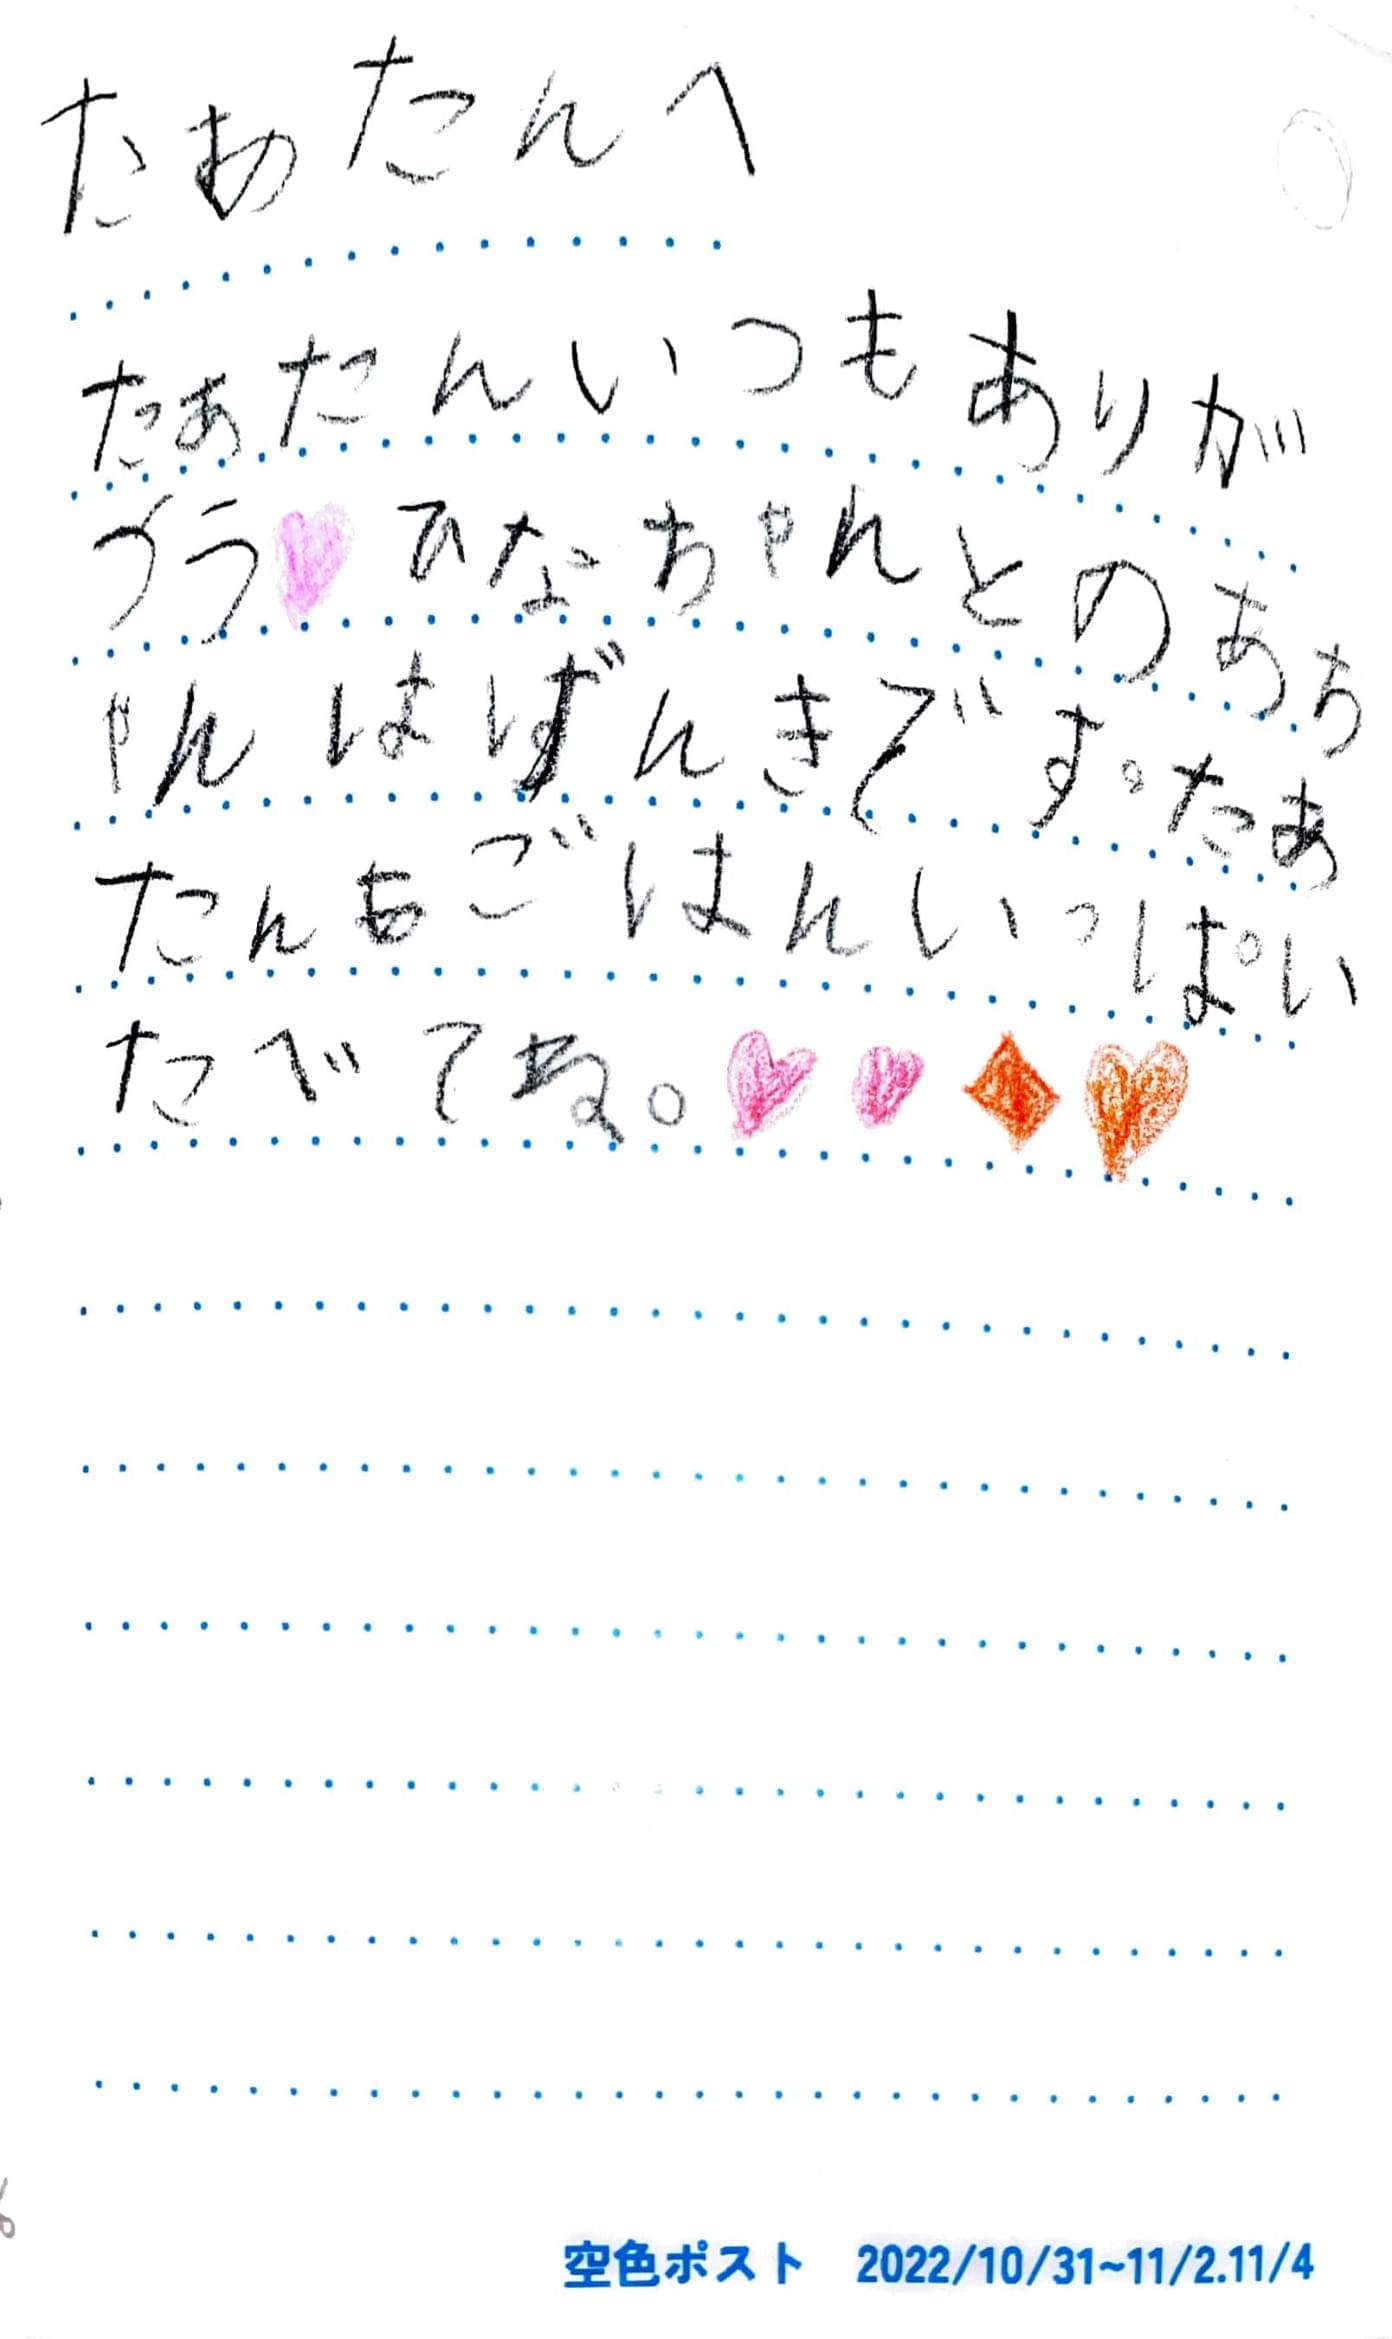 たあたんへ
たあたんいつもありが
とう ひなちゃんとのあち
ゃんはげんきです。たあ
たんもごはんいっぱい
たべてね。
空色ポスト 2022/10/31~11/2.11/4